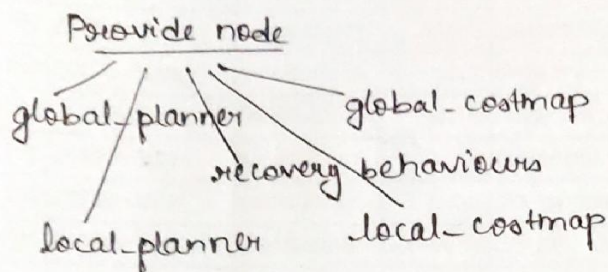 Provide node
global_planner
global_costmap
recovery behaviours
local_planner
local_costmap